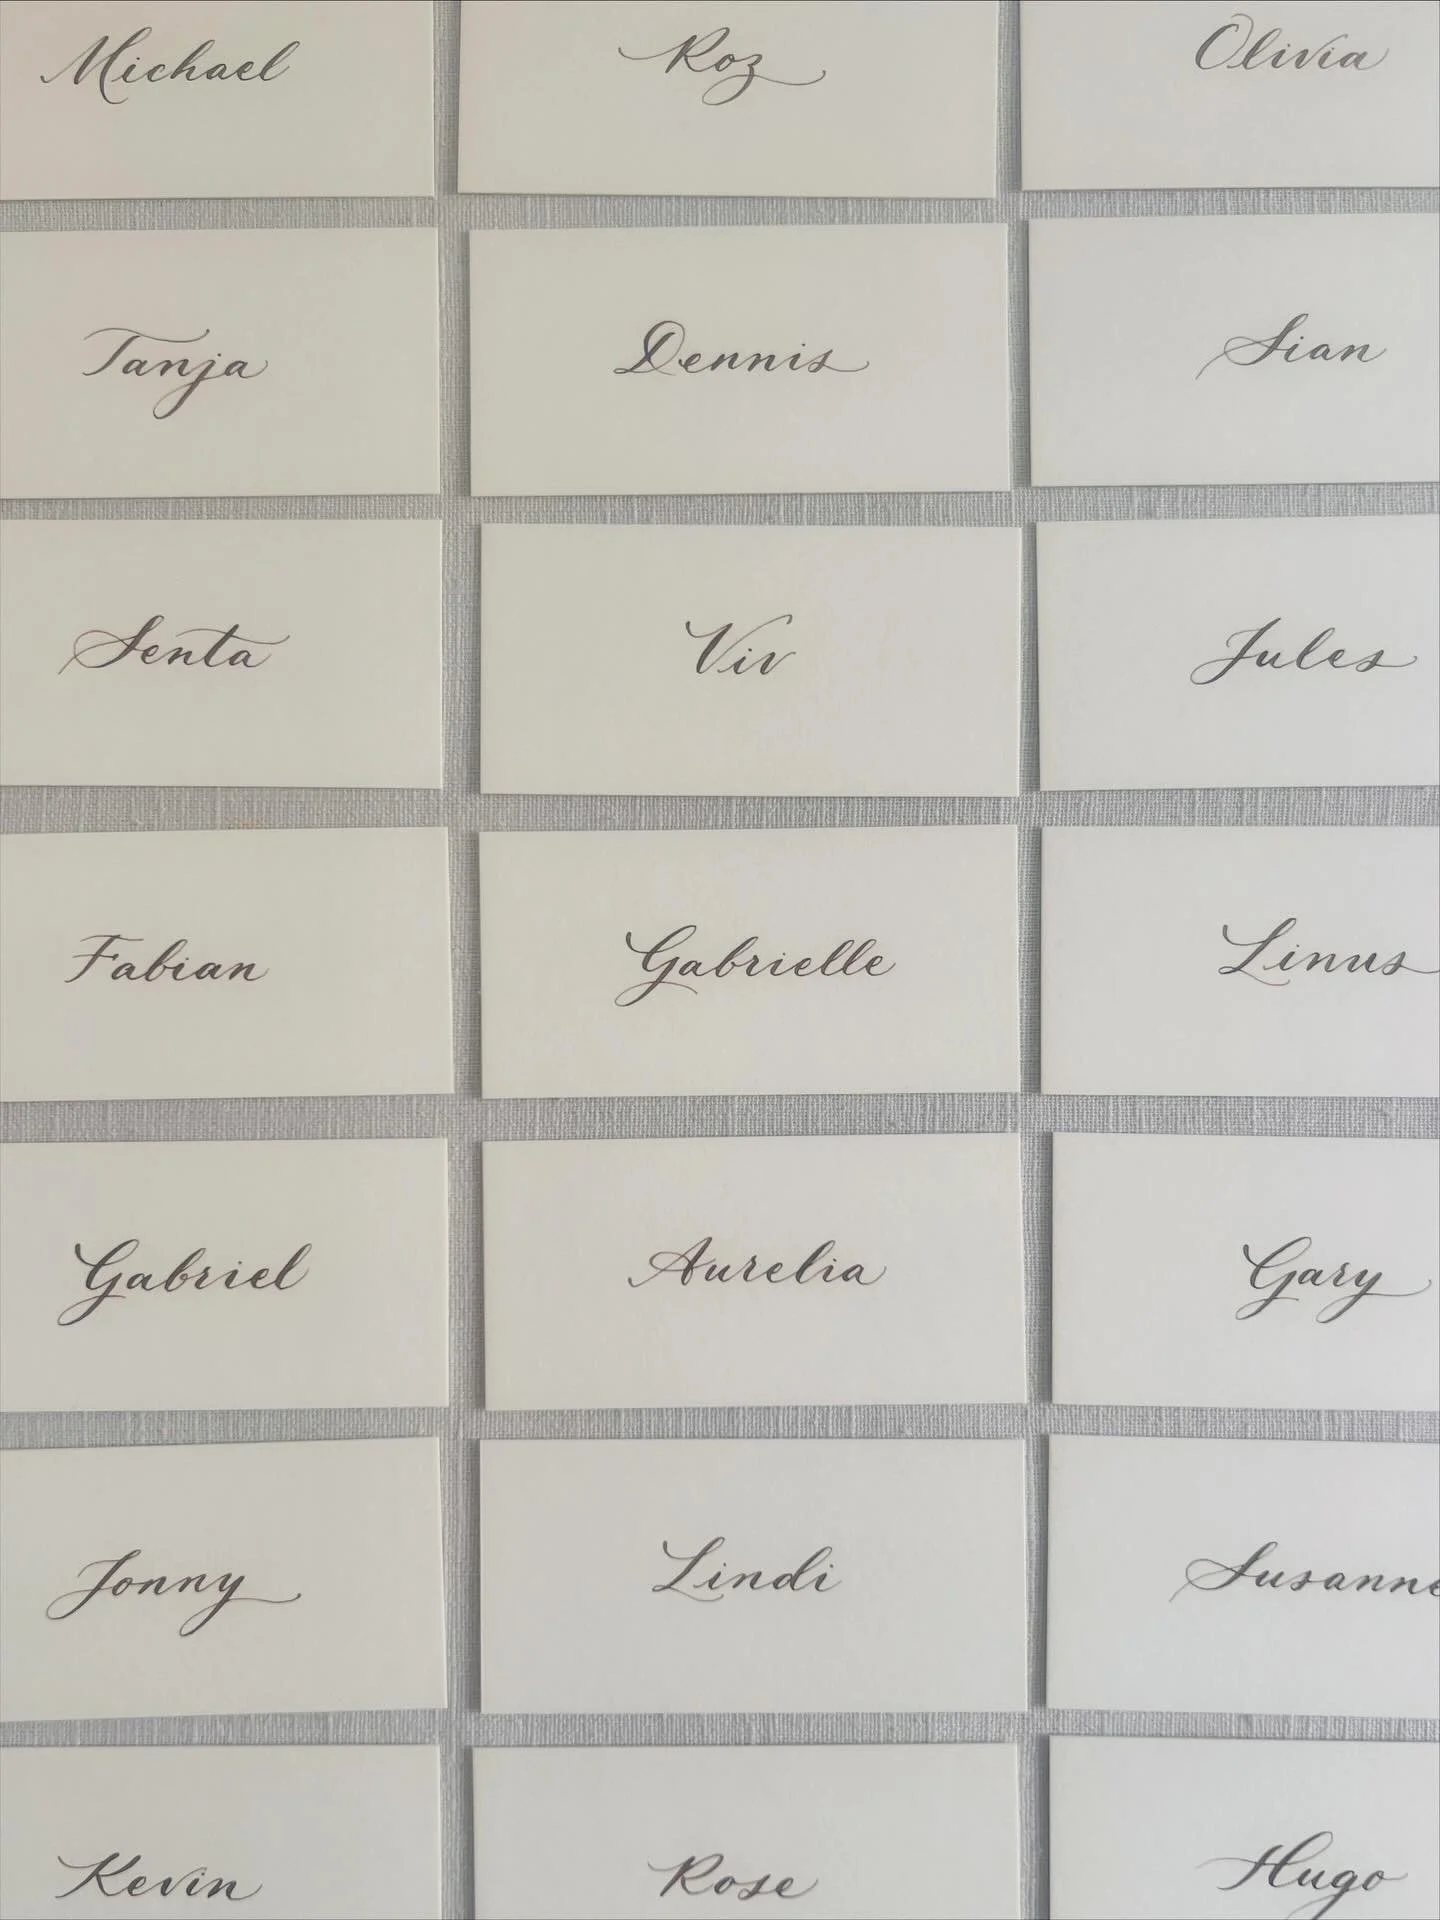 Michael
Roz
Olivia
Tanja
Dennis
Sian
Senta
Viv
Jules
Fabian
Gabrielle
Linus
Gabriel
Aurelia
Gary
Jonny
Lindi
Susanne
Kevin
Rose
Hugo